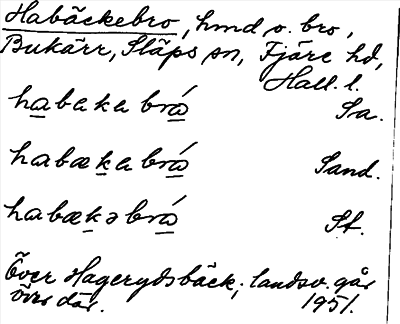 Habäckebro, hmd o. bro,
Bukärr, Släps sn, Fjäre hd,
Hall. l.
habaka brá Sa.
habæka brá Sand.
habækə brá St.
Över Hagerydsbäck; landsv. går
över där. 1951.